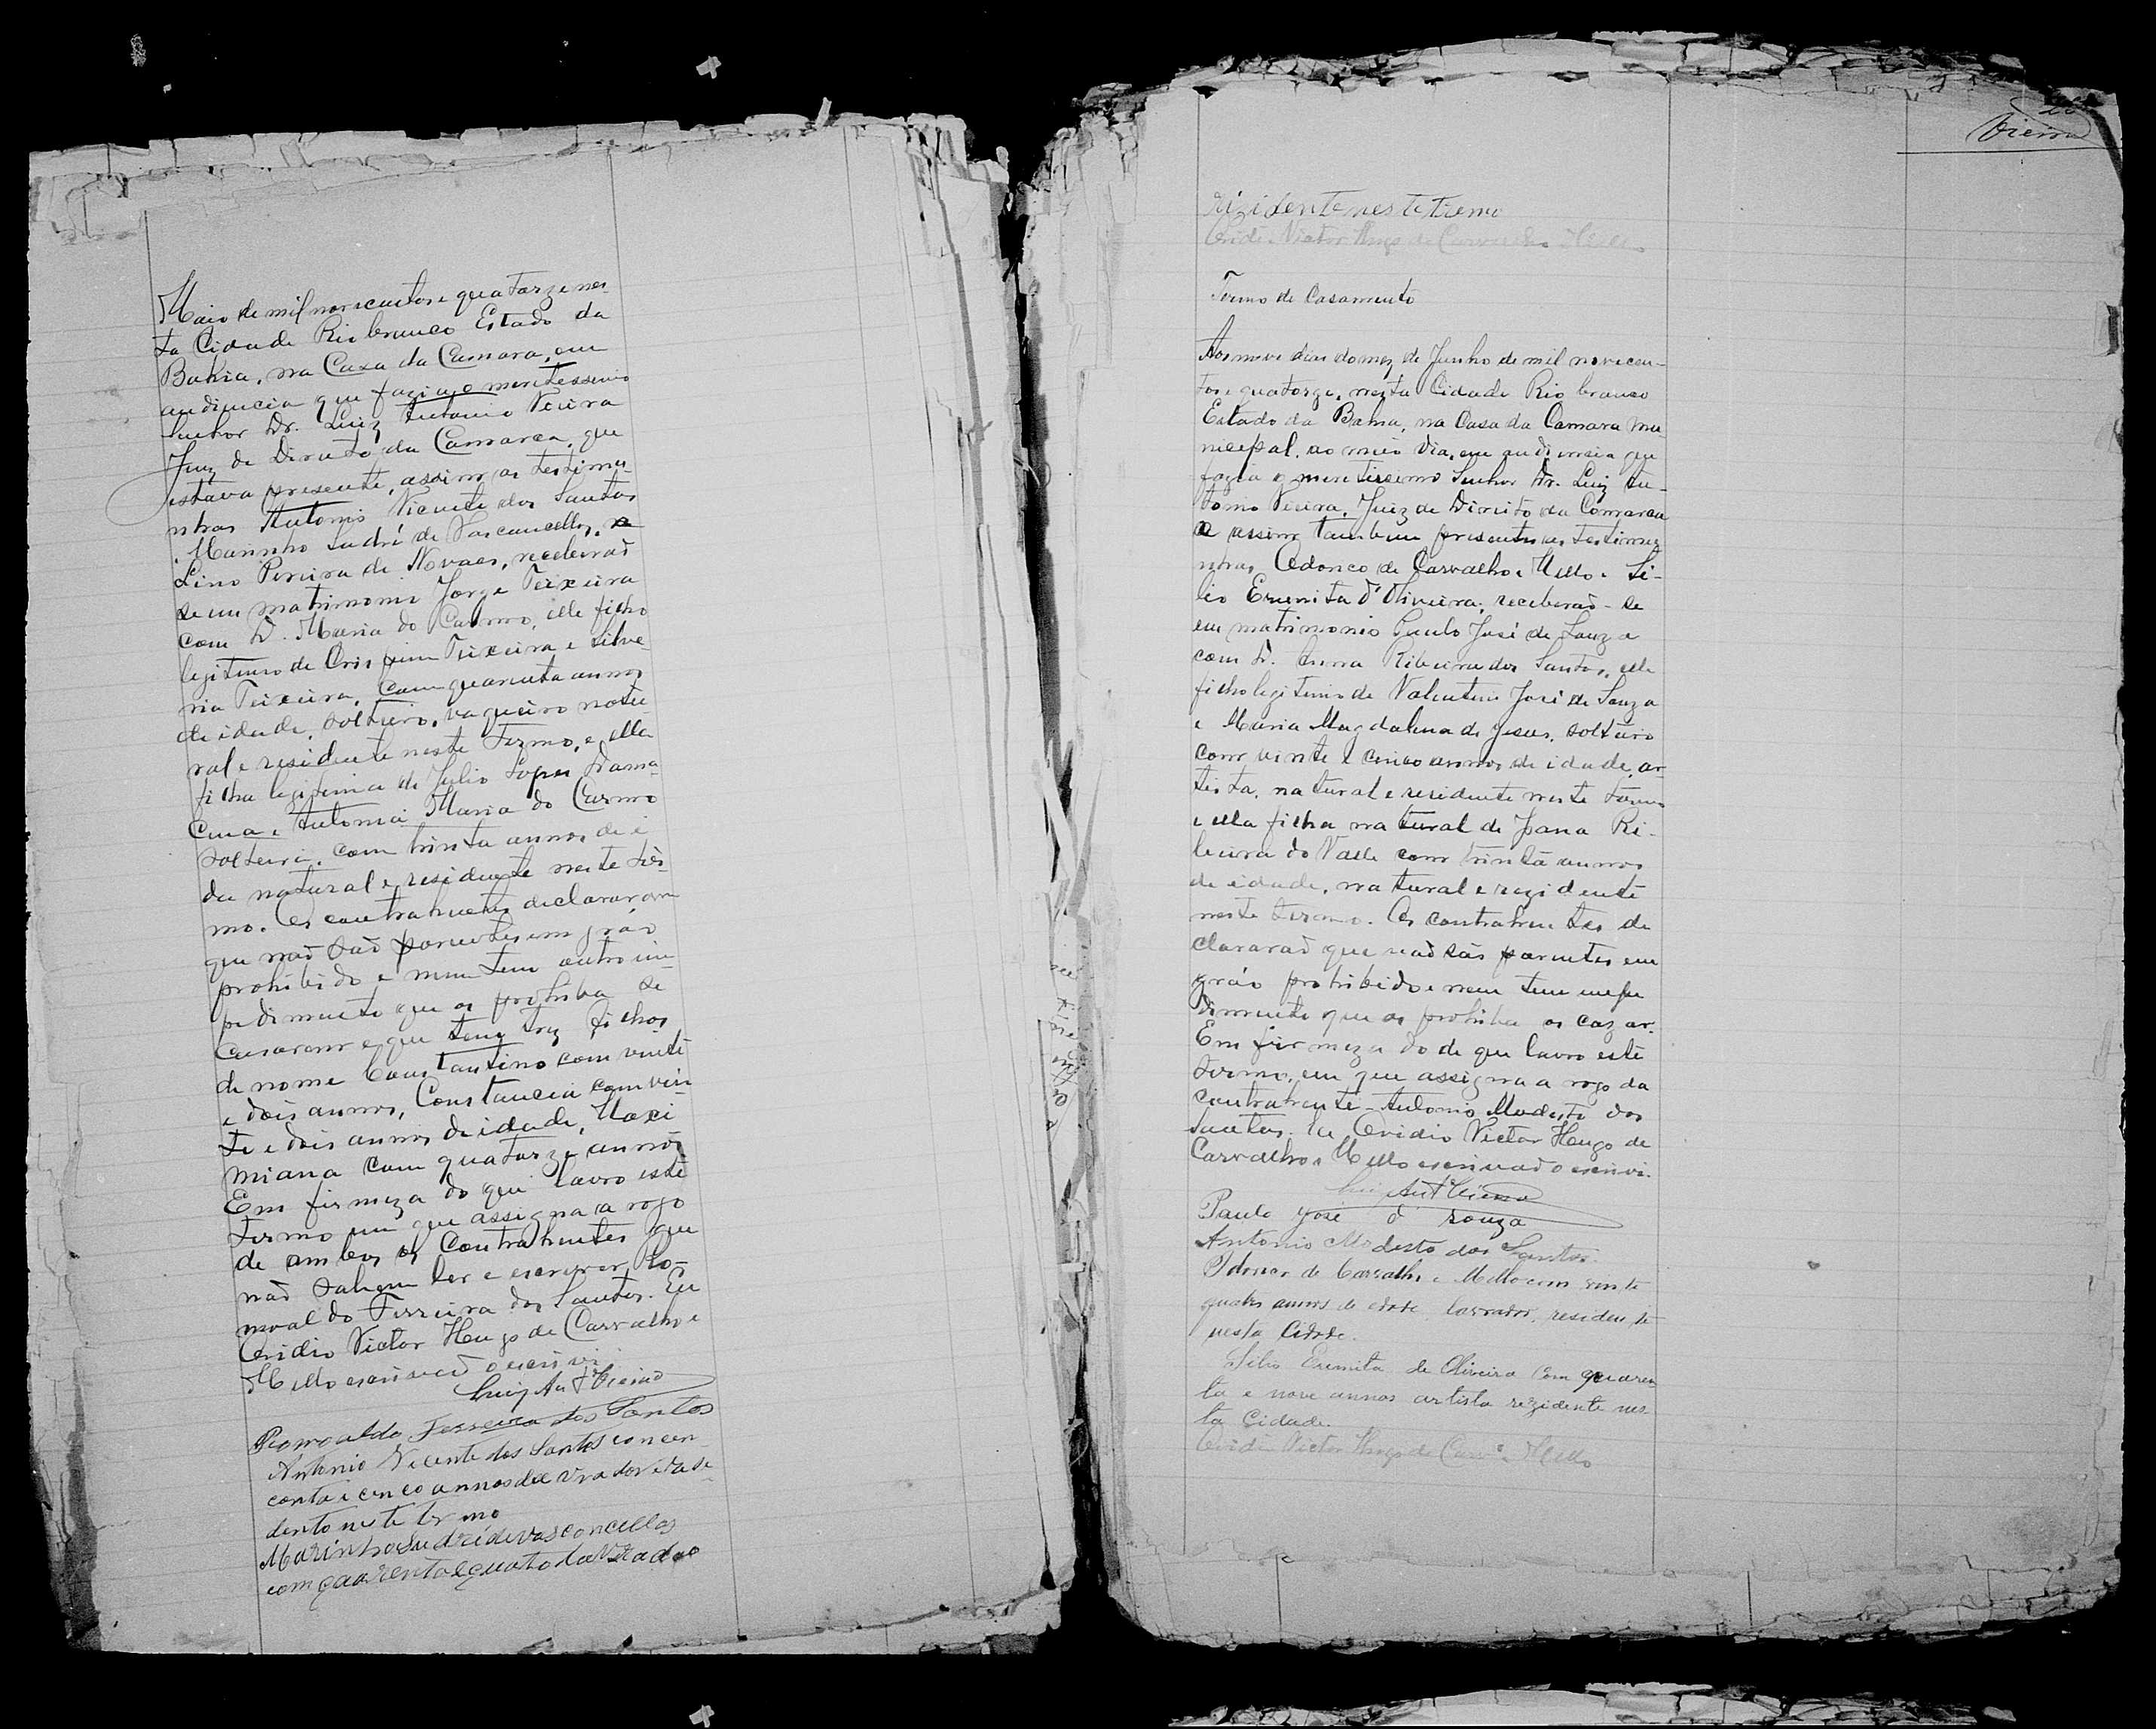 Maio de mil novecentos e quatorze nes-
ta Cidade Rio branco Estado da
Bahia, na Casa da Camara, em
audiencia que fazia o meretessimo
Senhor Dr. Luiz Antonio Vieira
Juiz de Direito da Camarca, que
estava presente, assim as testimu-
nhas Antonio Vicente dos Santos
Marinho Sudré de Vasconcellos, e
Lino Pereira de Novaes, receberaõ
se em matrimonio Jorge Teixeira
com D. Maria do Carmo, elle filho
legitimo de Crispim Teixeira e Silve-
ria Teixeira, com quarenta annos
de idade, solteiro, vaqueiro natu-
ral e residente neste Termo, e ella
filha legitima de Julio Lopes Dama-
cena e Antonia Maria do Carmo
solteira, com trinta annos de i
da natural e residente neste têr-
mo. Os contrahentes declararam
que naõ saõ parentes em gráo
prohibido e nem tem outro im-
pedimento que os prohiba se
casarem e que tem trez filhos
de nome Constantino com vinte
e dois annos, Constancia com vin
te e dois annos de idade, Maxi
miana com quatorze annos
Em firmeza do que lavro este
termo em que assigna a rogo
de ambos os Contrahentes que
naõ sabem ler e escrever, Ro-
mualdo Ferreira dos Santos. Eu
Ovidio Victor Hugo de Carvalho e
Mello escrivaõ o escrivi.
Luiz Ant Vieira
Romoaldo Ferreira dos Santos
Antonio Vicente dos Santos con cen
coenta e cinco annos
dente neste ter mo
Marinho Sudré de vasconcellos
com quarenta e quato lavrador
Vieira
rizidente neste tremo
Ovidio Victor Hugo de Carvalho Mello
Termo de Casamento
Aos nove dias do mez de Junho de mil novecen-
tos e quatorze, nesta Cidade Rio branco
Estado da Bahia, na Casa da Camara mu-
nicipal, ao meio dia, em audiencia que
fazia o meretissimo Senhor Dr. Luiz An-
tonio Vieira, Juiz de Direito da Comarca
e assim tambem presentes as testimu
nhas, Odonco de Carvalho e Mello e Si-
lio Eremita d'Oliveira, receberaõ-se
em matrimonio Paulo José de Souza
com D. Anna Ribeira dos Santos, elle
filho legitimo de Valentim José de Souza
e Maria Magdalena de Jesus, solteiro
com vinte e cinco annos de idade, ar-
tista, natural e residente neste termo
e ella filha natural de Joana Ri-
beira do Valle com trinta annos
de idade, natural e rezidente
neste termo. Os contrahentes de
clararaõ que naõ são parentes em
gráo prohibido e nem tem empe
dimento que os prohiba os cazar.
Em firmeza do de que lavro este
termo, em que assigna a rogo da
contrahente Antonio Modesto dos
Santos. Eu Ovidio Victor Hugo de
Carvalho e Mello escrivaõ o escrivi.
Luiz Ant Vieira
Paulo José d' souza
Antonio Modesto dos Santos.
de Carvalho e Mello com vinte
quatro annos de edade, lavrador, residente
nesta Cidade.
Silio Eremita de Oliveira com quaren
ta e nove annos artista rezidente nes-
ta Cidade.
Ovidio Victor Hugo de Carvº e Mello